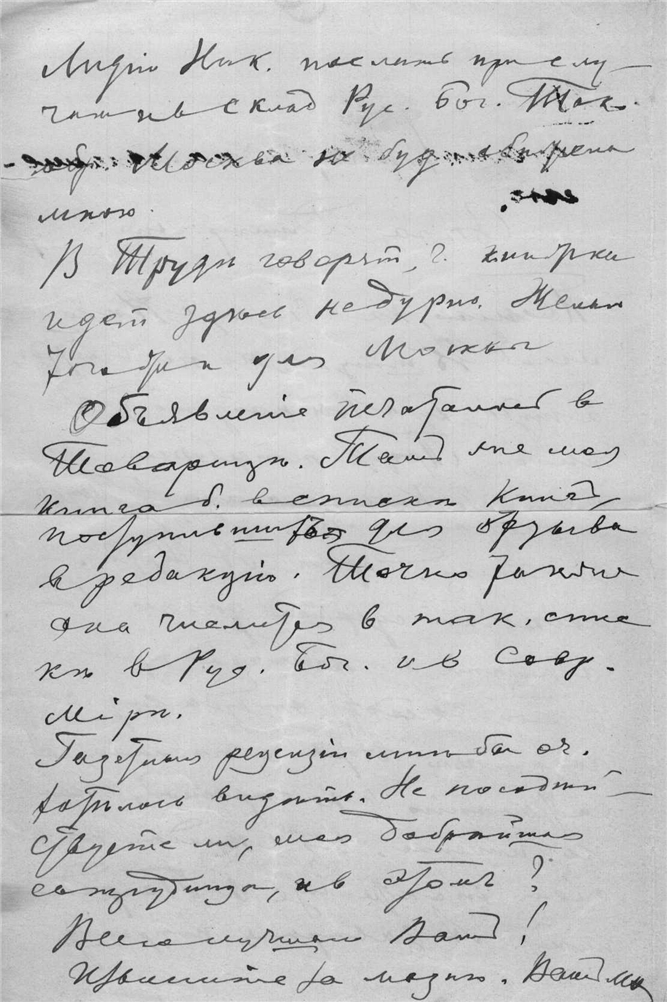 Лидію Ник. послать при слу-
чаѣ и в склад Рус. Бог. Так.
обр. Москва
мною.
В Трудѣ говорят, ч. книжка
идет здѣсь недурно.
для Москвы
Объявленіе печатают в
Товарищѣ. Там же моя
книга б. в списки книг,
поступивших для отзыва
в редакцію. Точно также
она числится в так. спис
кѣ в Рус. Бог. и в Совр.
Мірѣ.
Газетныя рецензіи мнѣ бы оч.
хотѣлось видѣть. Не посодѣй-
ствуете ли, моя добрѣйшая
сотрудница, и в этом?
Всего лучшаго Вам!
Извините за мазню. Ваш